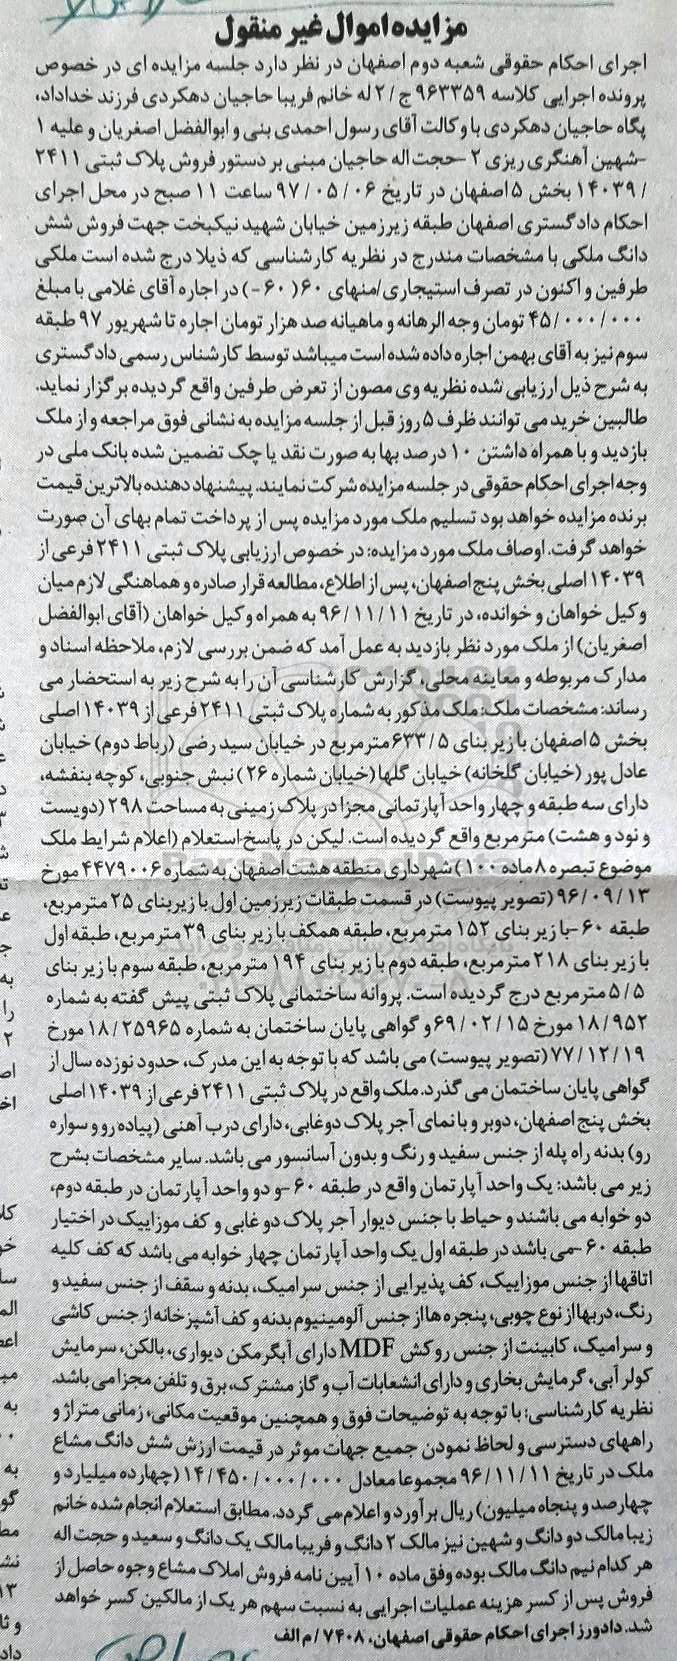 مزایده اموال غیر منقول
اجرای احکام حقوقی شعبه دوم اصفهان در نظر دارد جلسه مزایده ای در خصوص
پرونده اجرایی کلاسه ۹۶۳۳۵۹ ج/۲ له خانم فریبا حاجیان دهکردی فرزند خداداد،
پگاه حاجیان دهکردی با وکالت آقای رسول احمدی بنی و ابوالفضل اصغریان و علیه ۱
-شهین آهنگری ریزی ۲ -حجت اله حاجیان مبنی بر دستور فروش پلاک ثبتی ۲۴۱۱
/ ۱۴۰۳۹ بخش ۵ اصفهان در تاریخ ۹۷/۰۵/۰۶ ساعت ۱۱ صبح در محل اجرای
احکام دادگستری اصفهان طبقه زیرزمین خیابان شهید نیکبخت جهت فروش شش
دانگ ملکی با مشخصات مندرج در نظریه کارشناسی که ذیلا درج شده است ملکی
طرفین و اکنون در تصرف استیجاری/منهای ۶۰( ۶۰ -) در اجاره آقای غلامی با مبلغ
۴۵/۰۰۰/۰۰۰ تومان وجه الرهانه و ماهیانه صد هزار تومان اجاره تا شهریور ۹۷ طبقه
سوم نیز به آقای بهمن اجاره داده شده است میباشد توسط کارشناس رسمی دادگستری
به شرح ذیل ارزیابی شده نظریه وی مصون از تعرض طرفین واقع گردیده برگزار نماید.
طالبین خرید می توانند ظرف ۵ روز قبل از جلسه مزایده به نشانی فوق مراجعه و از ملک
بازدید و با همراه داشتن ۱۰ درصد بها به صورت نقد یا چک تضمین شده بانک ملی در
وجه اجرای احکام حقوقی در جلسه مزایده شرکت نمایند. پیشنهاد دهنده بالاترین قیمت
برنده مزایده خواهد بود تسلیم ملک مورد مزایده پس از پرداخت تمام بهای آن صورت
خواهد گرفت. اوصاف ملک مورد مزایده: در خصوص ارزیابی پلاک ثبتی ۲۴۱۱ فرعی از
۱۴۰۳۹ اصلی بخش پنج اصفهان، پس از اطلاع، مطالعه قرار صادره و هماهنگی لازم میان
وکیل خواهان و خوانده، در تاریخ ۹۶/۱۱/۱۱ به همراه وکیل خواهان (آقای ابوالفضل
اصغریان) از ملک مورد نظر بازدید به عمل آمد که ضمن بررسی لازم، ملاحظه اسناد و
مدارک مربوطه و معاینه محلی، گزارش کارشناسی آن را به شرح زیر به استحضار می
رساند: مشخصات ملک: ملک مذکور به شماره پلاک ثبتی ۲۴۱۱ فرعی از ۱۴۰۳۹ اصلی
بخش ۵ اصفهان با زیر بنای ۶۳۳/۵ مترمربع در خیابان سید رضی (رباط دوم) خیابان
عادل پور (خیابان گلخانه) خیابان گلها (خیابان شماره ۲۶) نبش جنوبی، کوچه بنفشه،
دارای سه طبقه و چهار واحد آپارتمانی مجزا در پلاک زمینی به مساحت ۲۹۸ (دویست
و نود و هشت) مترمربع واقع گردیده است. لیکن در پاسخ استعلام (اعلام شرایط ملک
موضوع تبصره ۸ ماده ۱۰۰ ) شهرداری منطقه هشت اصفهان به شماره ۴۴۷۹۰۰۶ مورخ
۹۶/۰۹/۱۳ (تصویر پیوست) در قسمت طبقات زیرزمین اول با زیربنای ۲۵ مترمربع،
طبقه ۶۰ -با زیر بنای ۱۵۲ مترمربع، طبقه همکف با زیر بنای ۳۹ مترمربع، طبقه اول
با زیر بنای ۲۱۸ مترمربع، طبقه دوم با زیر بنای ۱۹۴ مترمربع، طبقه سوم با زیر بنای
۵/۵ مترمربع درج گردیده است. پروانه ساختمانی پلاک ثبتی پیش گفته به شماره
۱۸/۹۵۲ مورخ ۶۹/۰۲/۱۵ و گواهی پایان ساختمان به شماره ۱۸/۲۵۹۶۵ مورخ
۷۷/۱۲/۱۹ (تصویر پیوست) می باشد که با توجه به این مدرک، حدود نوزده سال از
گواهی پایان ساختمان می گذرد. ملک واقع در پلاک ثبتی ۲۴۱۱ فرعی از ۱۴۰۳۹ اصلی
بخش پنج اصفهان، دوبر و با نمای آجر پلاک دوغابی، دارای درب آهنی (پیاده رو و سواره
رو) بدنه راه پله از جنس سفید و رنگ و بدون آسانسور می باشد. سایر مشخصات بشرح
زیر می باشد: یک واحد آپارتمان واقع در طبقه ۶۰ -و دو واحد آپارتمان در طبقه دوم،
دو خوابه می باشند و حیاط با جنس دیوار آجر پلاک دو غابی و کف موزاییک در اختیار
طبقه ۶۰ -می باشد در طبقه اول یک واحد آپارتمان چهار خوابه می باشد که کف کلیه
اتاقها از جنس موزاییک، کف پذیرایی از جنس سرامیک، بدنه و سقف از جنس سفید و
رنگ، دربها از نوع چوبی، پنجره ها از جنس آلومینیوم بدنه و کف آشپزخانه از جنس کاشی
و سرامیک، کابینت از جنس روکش MDF دارای آبگرمکن دیواری، بالکن، سرمایش
کولر آبی، گرمایش بخاری و دارای انشعابات آب و گاز مشترک، برق و تلفن مجزا می باشد.
نظریه کارشناسی: با توجه به توضیحات فوق و همچنین موقعیت مکانی، زمانی متراژ و
راههای دسترسی و لحاظ نمودن جمیع جهات موثر در قیمت ارزش شش دانگ مشاع
ملک در تاریخ ۹۶/۱۱/۱۱ مجموعا معادل ۱۴/۴۵۰/۰۰۰/۰۰۰ (چهارده میلیارد و
چهارصد و پنجاه میلیون) ریال برآورد و اعلام می گردد. مطابق استعلام انجام شده خانم
زیبا مالک دو دانگ و شهین نیز مالک ۲ دانگ و فریبا مالک یک دانگ و سعید و حجت اله
هر کدام نیم دانگ مالک بوده وفق ماده ۱۰ آیین نامه فروش املاک مشاع وجوه حاصل از
فروش پس از کسر هزینه عملیات اجرایی به نسبت سهم هر یک از مالکین کسر خواهد
شد. دادورز اجرای احکام حقوقی اصفهان، ۷۴۰۸/م الف